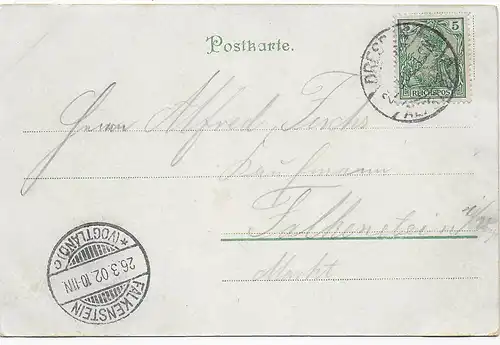 Postkarte.
5
REICHSPOST
DRESDEN
Herrn Alfred
Kaufmann
Falkenstein i/
Markt
*(VOGTLAND) c
26.3.02.10-11N
FALKENSTEIN